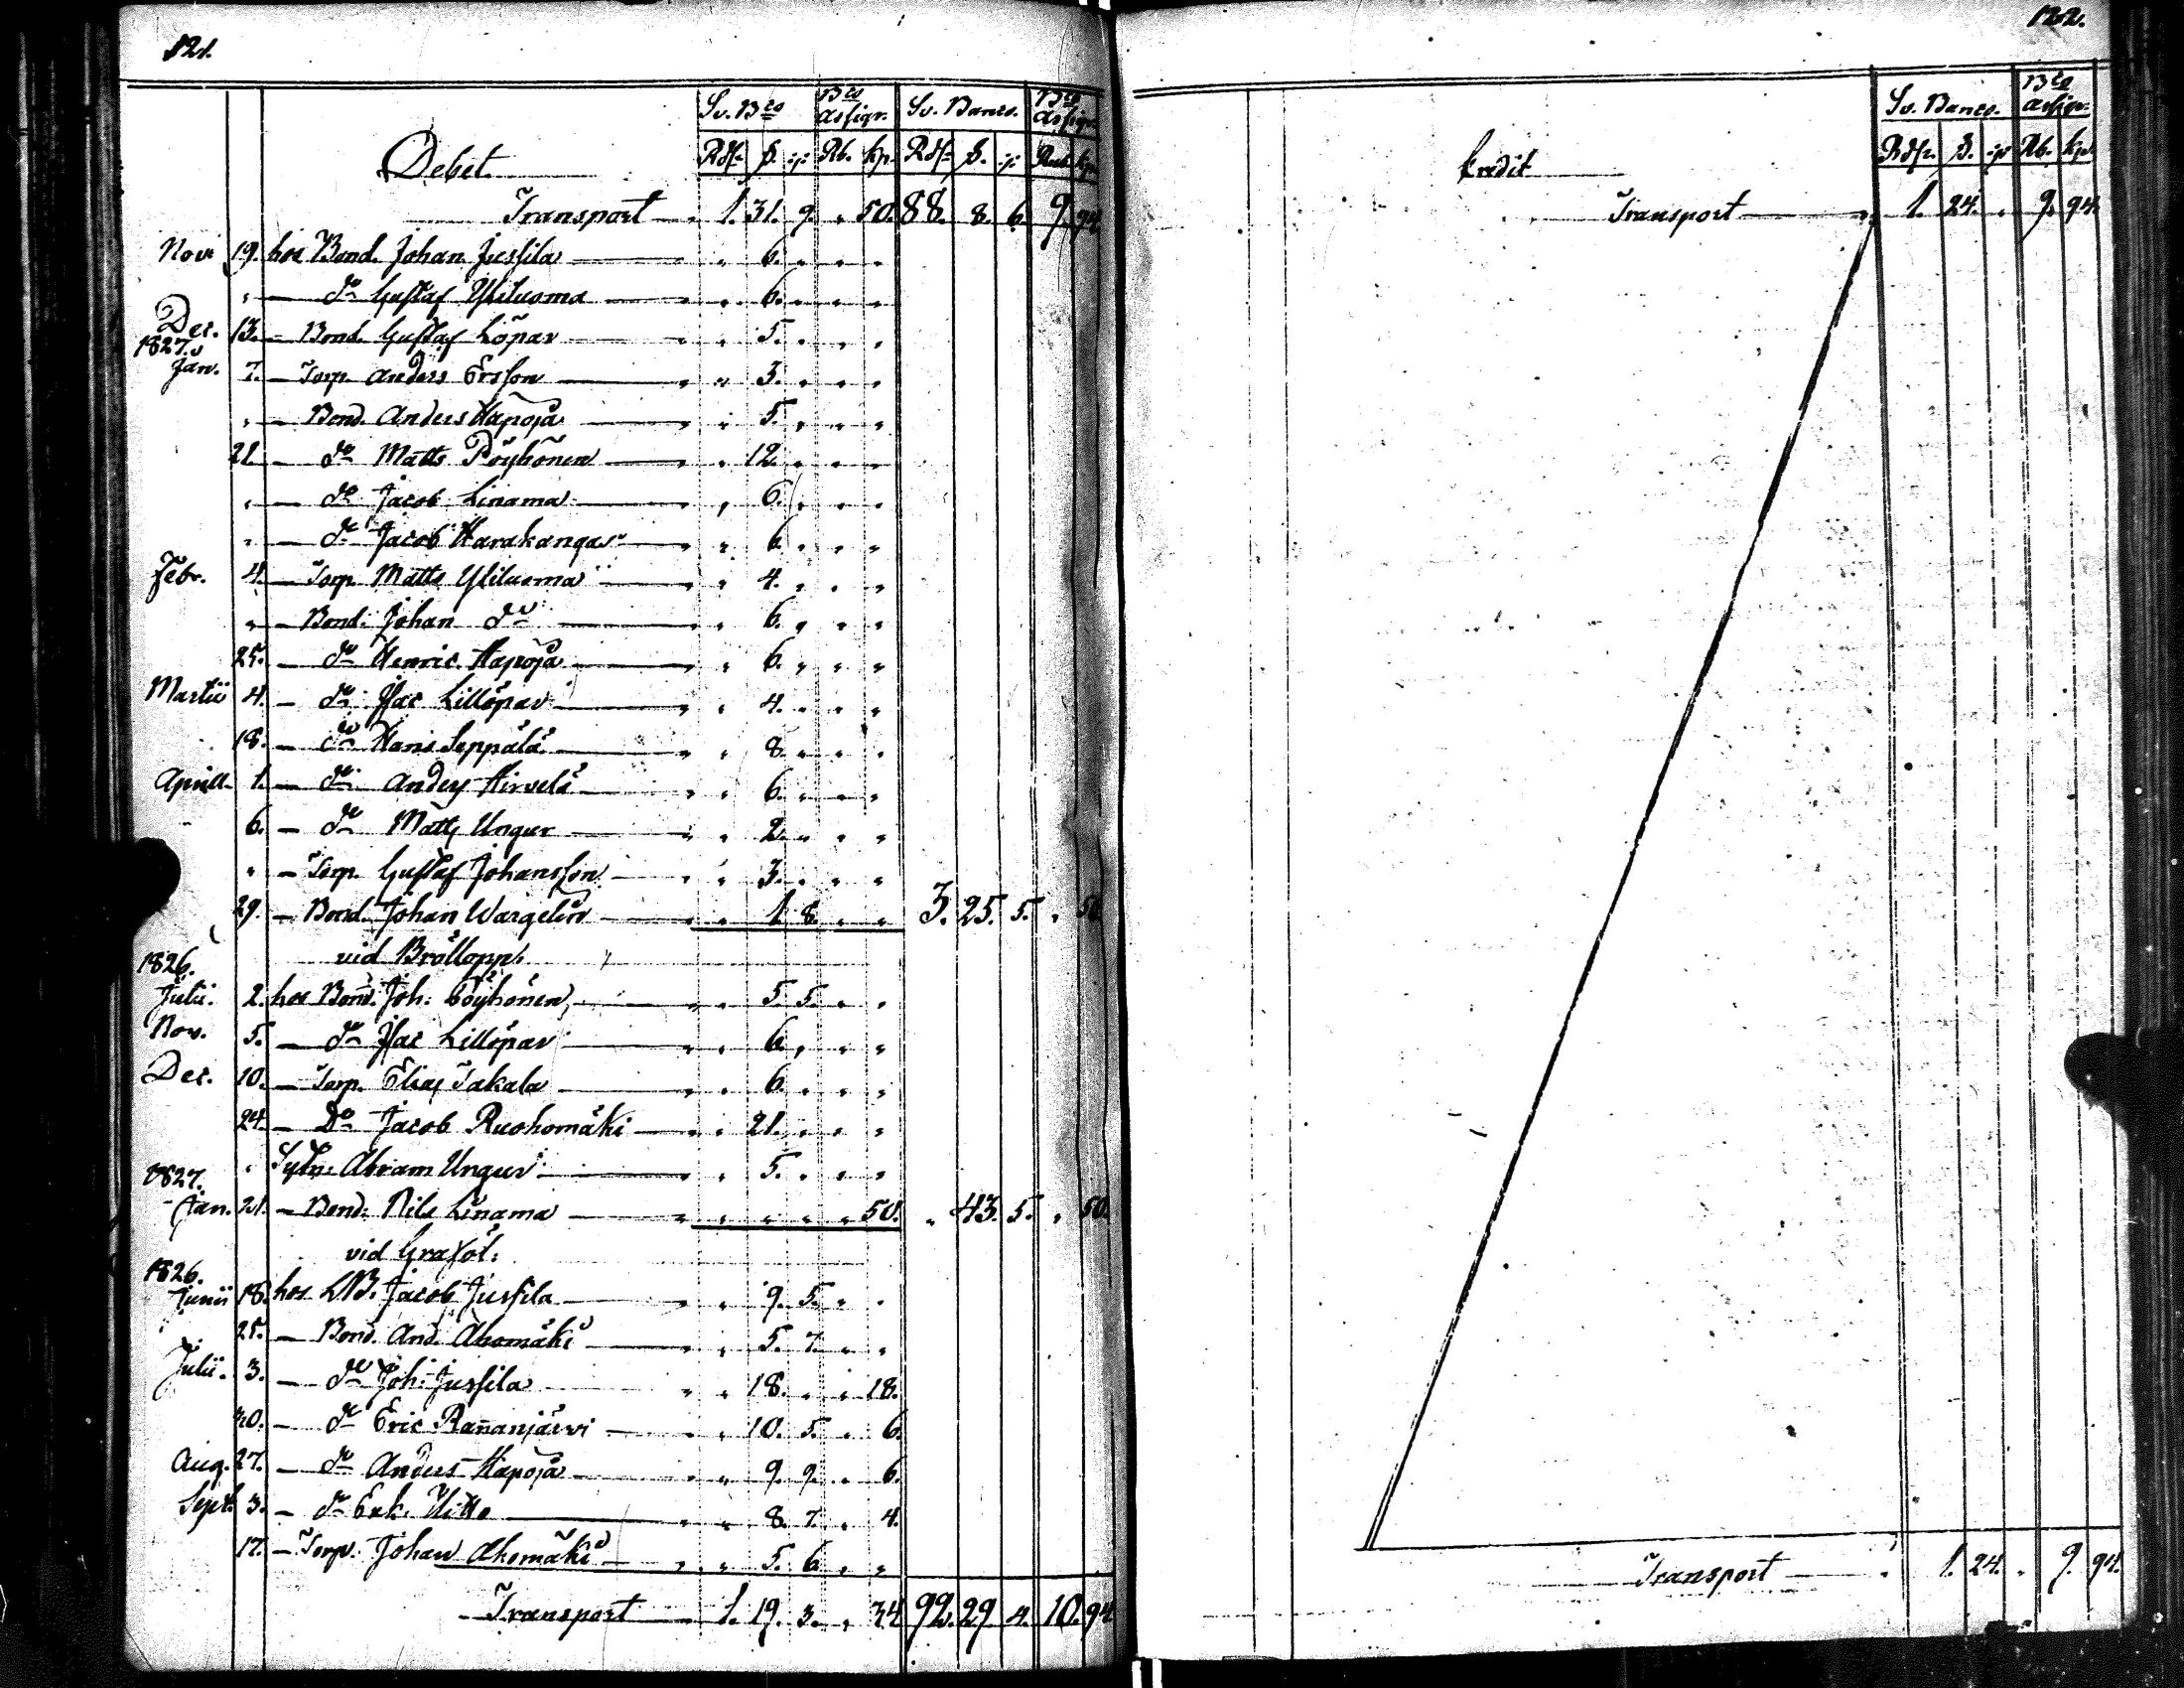 121.
Sv. Bco Bco assign. Sv. Banco. Bco assign.
Debet. Rdr. ß. rp Rb. kp. Rdr. ß. rp Rub. kp.
Transport 1. 31. 9. " 50. 88. 8. 6. 9. 94
Nov. 19. hos Bond. Johan Jussila " " 6. " " "
" — do Gustaf Yliluoma " " 6. " " "
Dec. 13. — Bond. Gustaf Löpar " " 5. " " "
1827.
Jan. 7. — Torp. Anders Ersson " " 3. " " "
" — Bond. Anders Hapoja " " 5. " " "
21. — do Matts Pöyhönen " " 12. " " "
" — do Jacob Linama " " 6. " " "
" — do Jacob Harakangas " " 6. " " "
Febr. 4. — Torp. Matts Yliluoma " " 4. " " "
" — Bond. Johan do " " 6. " " "
25. — do Henric Hapoja " " 6. " " "
Martii 4. — do Isac Lillöpar " " 4. " " "
18. — do Hans Seppälä " " 8. " " "
Aprill 1. — do Anders Hirvelä " " 6. " " "
6. — do Matts Ungur " " 2. " " "
" — Torp. Gustaf Johansson " " 3. " " "
29. — Bond. Johan Wargelin " " 1. 8. " " 3. 25. 5. " 50.
vid Bröllopp.
1826.
Julii. 2. hos Bond. Joh: Pöyhönen " " 5. 5. " "
Nov. 5. — do Isac Lillöpar " " 6. " " "
Dec. 10. — Torp. Elias Takala " " 6. " " "
24. — Do Jacob Ruohomäki " " 21. " " "
" Sytn: Abram Ungur " " 5. " " "
1827.
Jan. 21. — Bond: Nils Linama " " " " " 50. " 43. 5. " 50.
vid Graföl:
1826.
Junii 18. hos LB. Jacob Jussila " " 9. 5. " "
25. — Bond. And. Ahomäki " " 5. 7. " "
Julii. 3. — do Joh: Jussila " " 18. " " 18.
30. — do Eric Rannanjärvi " " 10. 5. " 6.
Aug. 27. — do Anders Hapoja " " 9. 9. " 6.
Sept. 3. — do Erk. Hitto " " 8. 7. " 4.
17. — Torp. Johan Ahomäki " " 5. 6. " "
Transport 1. 19. 3. " 34 92. 29. 4. 10. 94
122.
Sv. Banco. Bco assign.
Credit Rdr. ß. rp Rb. kp
Transport " 1. 24. " 9. 94.
Transport " 1. 24. " 9. 94.